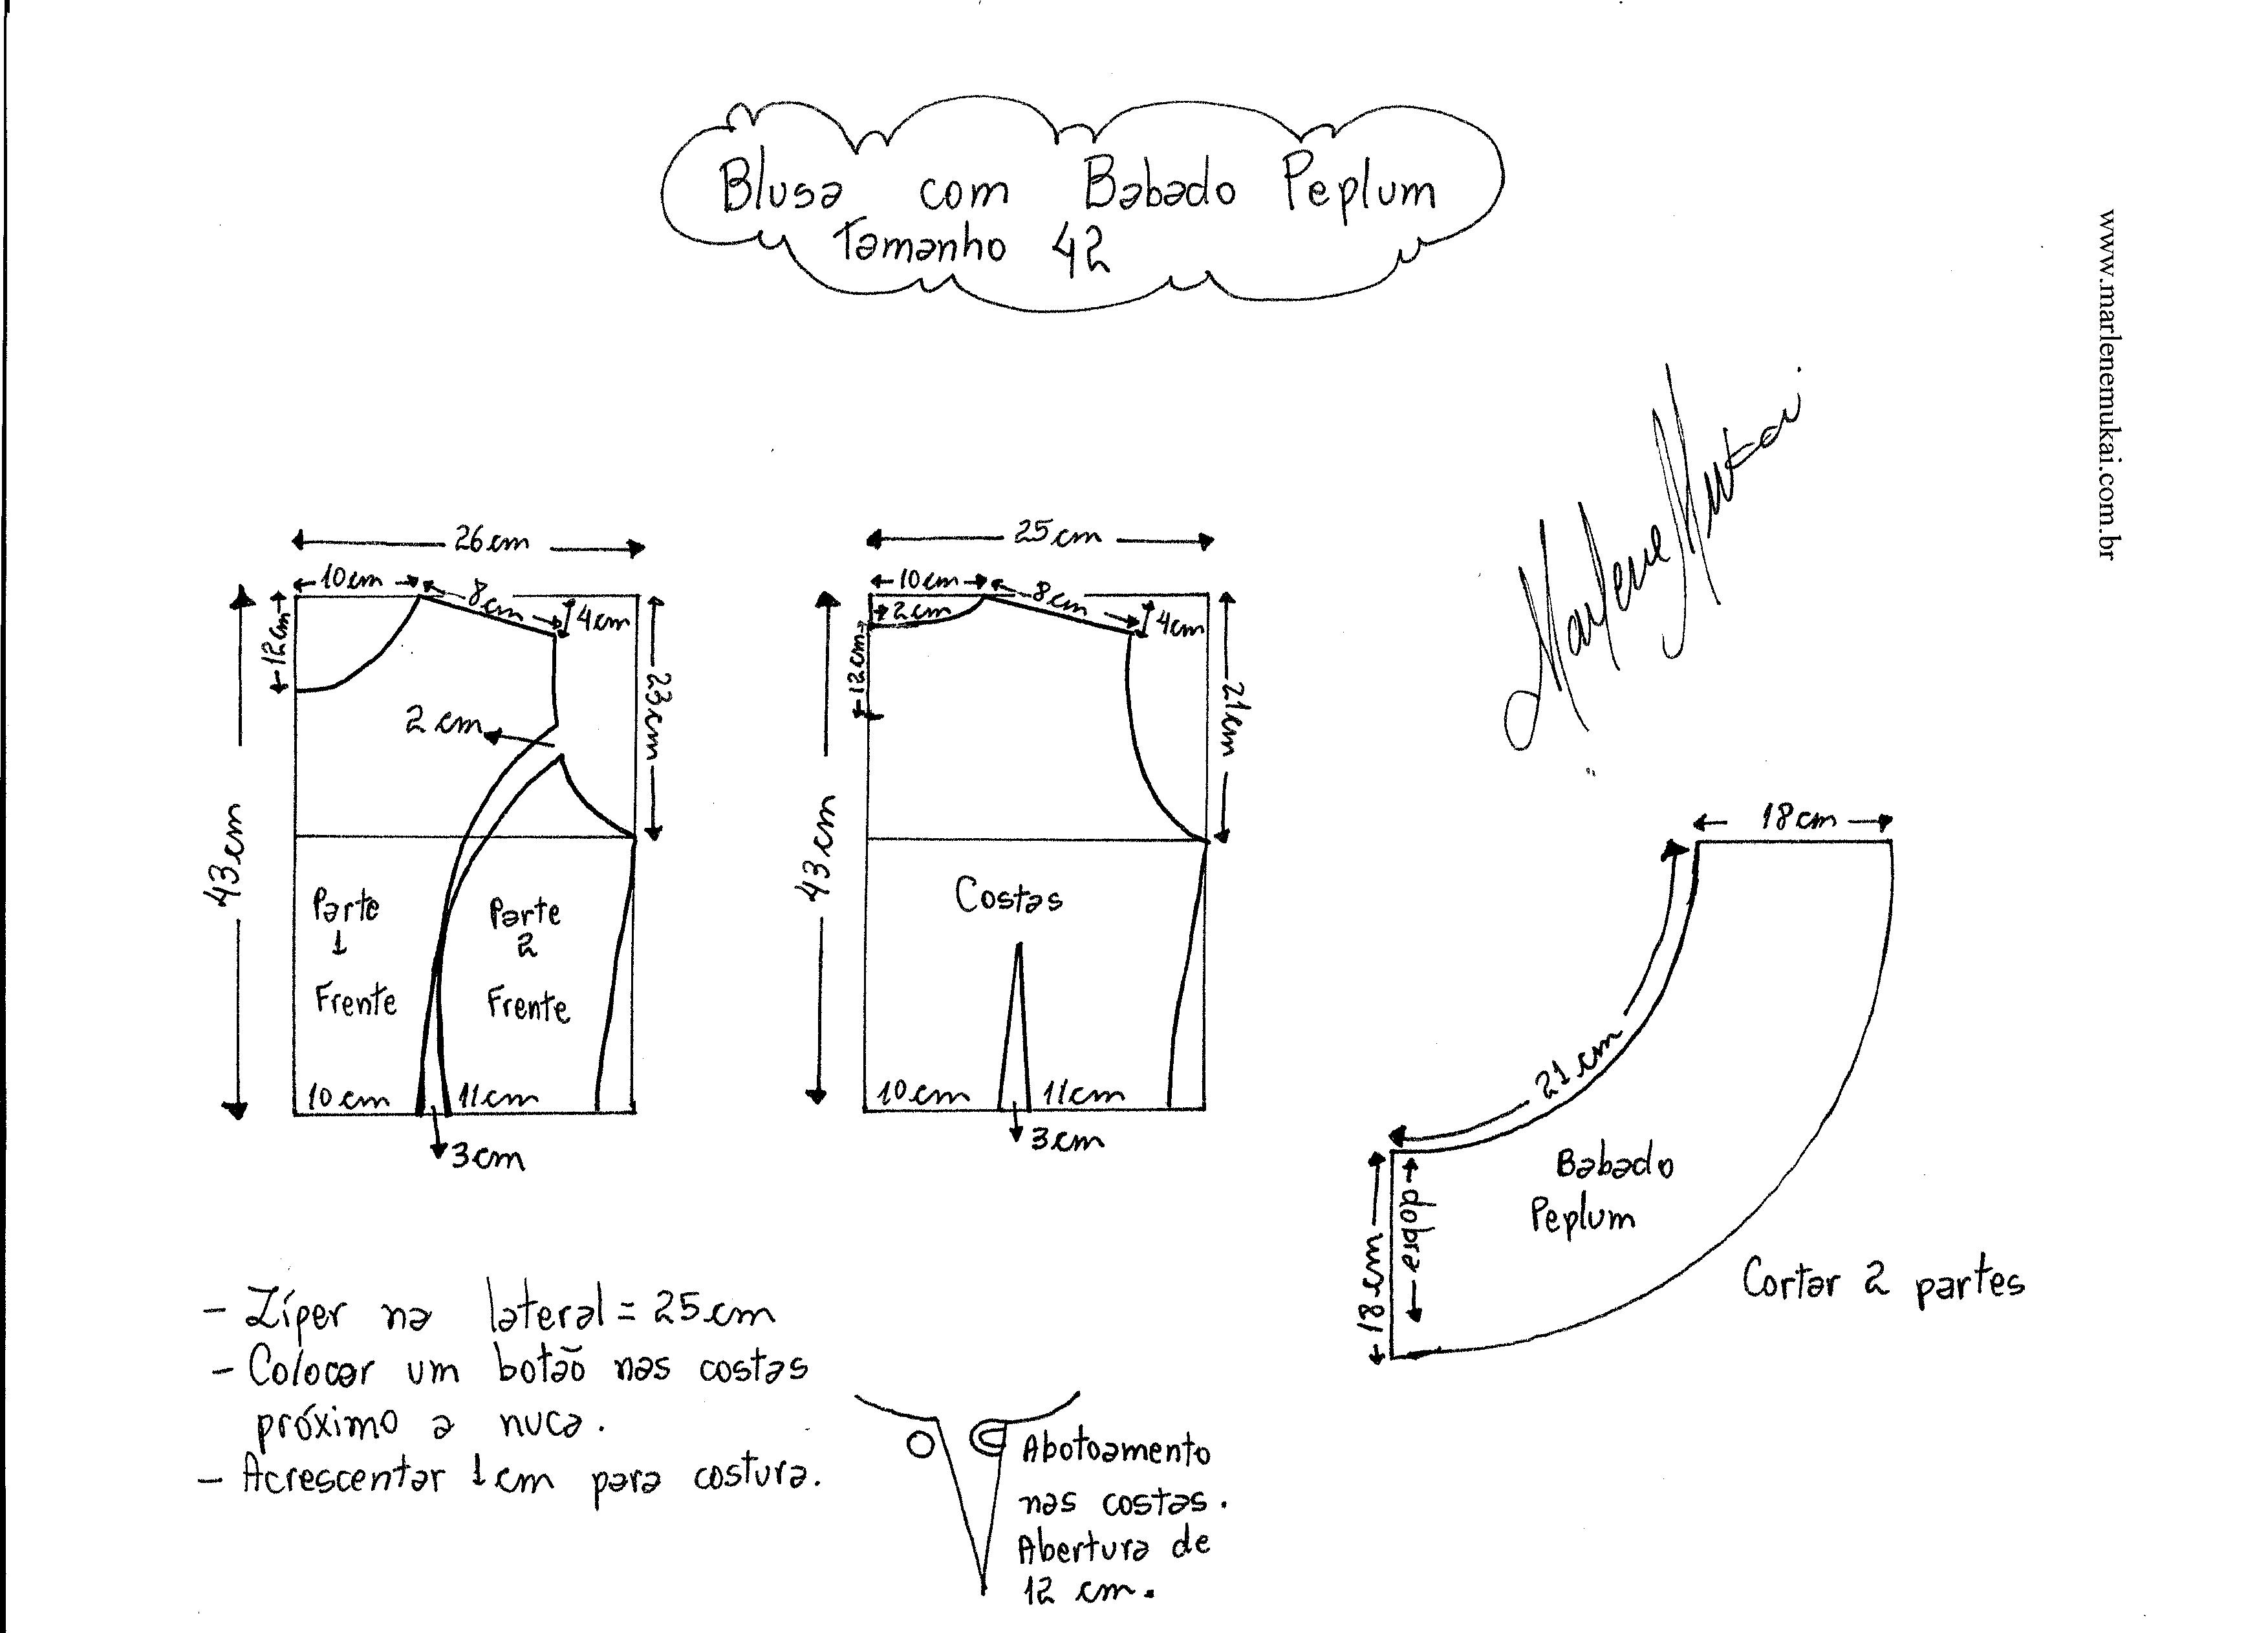 Blusa com Babado Peplum
Tamanho 42
www.marlenemukai.com.br
Marlene Mukai
26 cm
10 cm
8 cm
4 cm
12 cm
23 cm
2 cm
43 cm
Parte
1
Frente
Parte
2
Frente
10 cm
11 cm
3 cm
25 cm
10 cm
8 cm
4 cm
2 cm
12 cm
21 cm
43 cm
Costas
10 cm
11 cm
3 cm
18 cm
21 cm
Babado
Peplum
dobra
18 cm
Cortar 2 partes
- Zíper na lateral = 25 cm
- Colocar um botão nas costas
próximo a nuca.
- Acrescentar 1 cm para costura.
Abotoamento
nas costas.
Abertura de
12 cm.